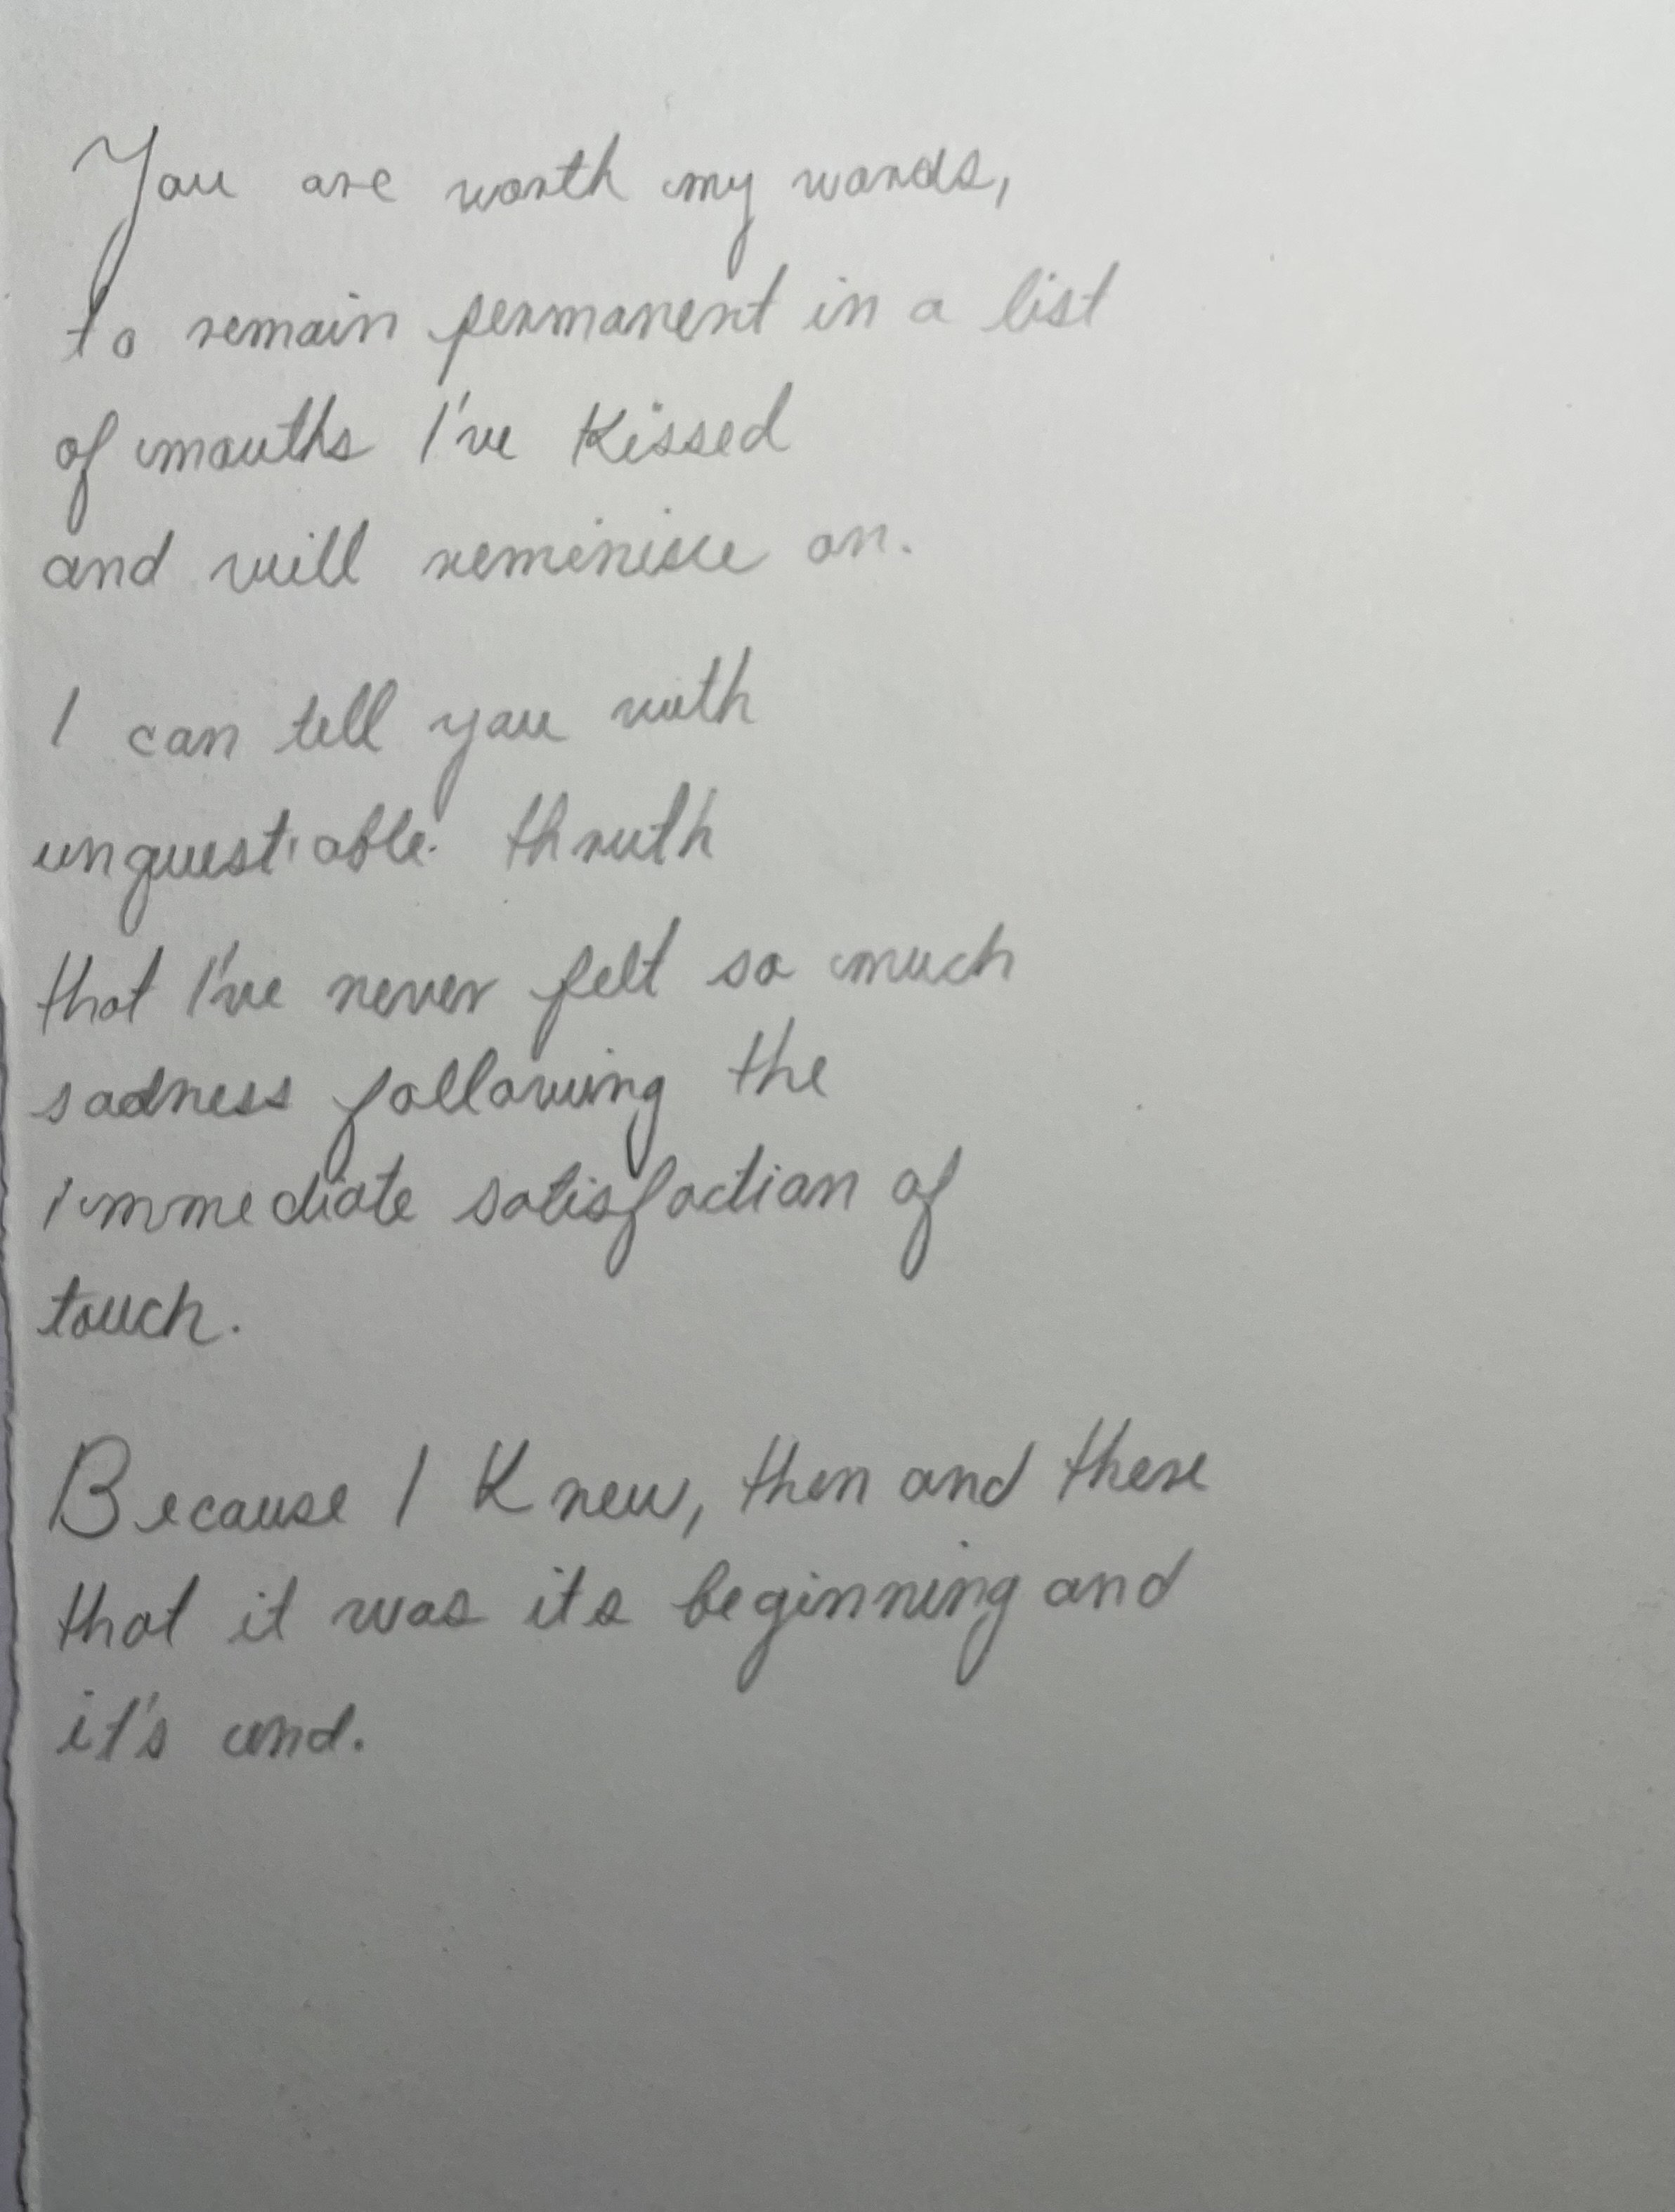 You are worth my words,
to remain permanent in a list
of mouths I've kissed
and will reminisce on.
I can tell you with
unquestiable thruth
that I've never felt so much
sadness following the
immediate satisfaction of
touch.
Because I knew, then and there
that it was its beginning and
it's end.